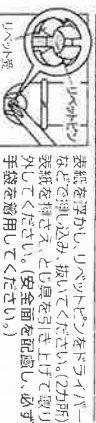 リベット穴
リベットピン
表紙を浮かし、リベットピンをドライバー
などで押し込み、抜いてください。(2カ所)
表紙を押さえ、とじ具を引き上げて取り
外してください。(安全面を配慮し、必ず
手袋を着用してください。)